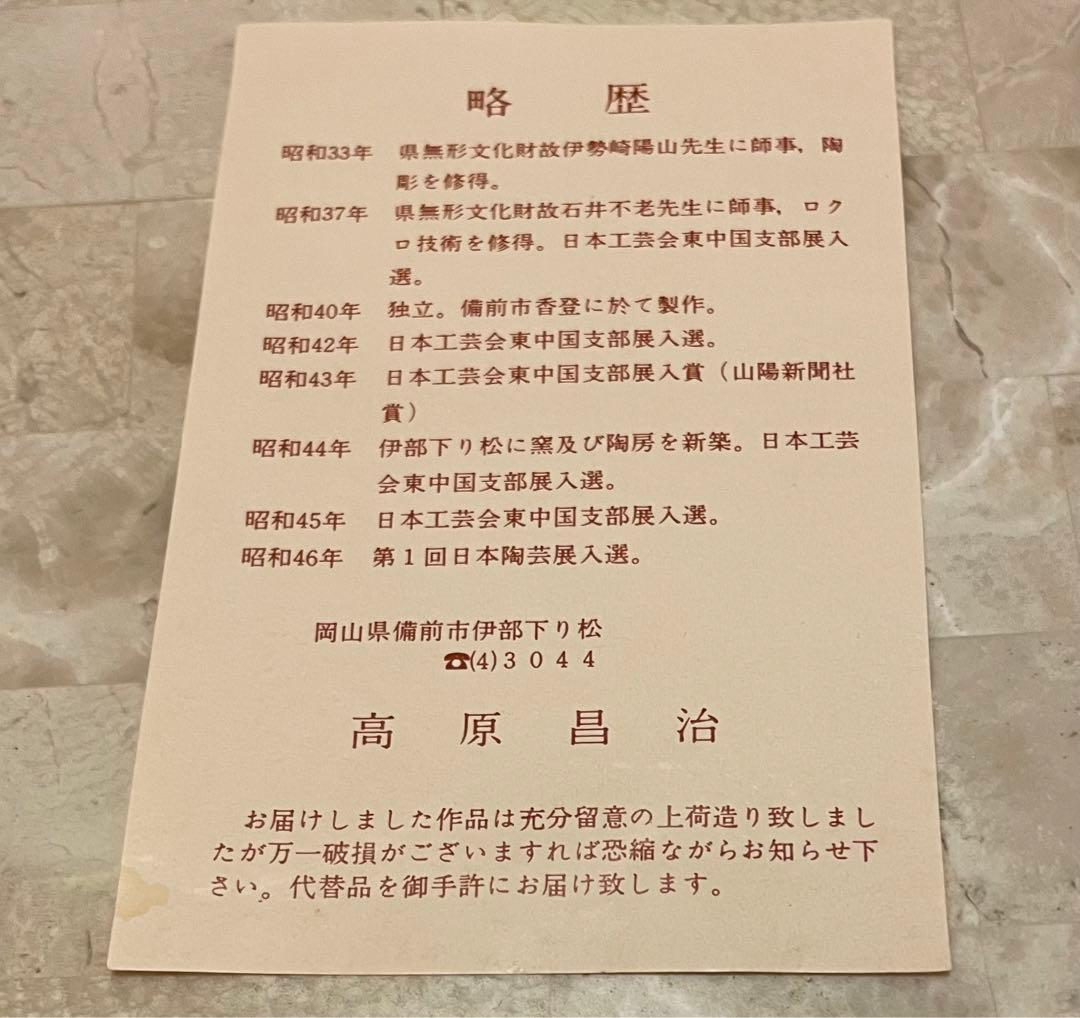 略歴
昭和33年 県無形文化財故伊勢崎陽山先生に師事，陶
彫を修得。
昭和37年 県無形文化財故石井不老先生に師事，ロク
ロ技術を修得。日本工芸会東中国支部展入
選。
昭和40年 独立。備前市香登に於て製作。
昭和42年 日本工芸会東中国支部展入選。
昭和43年 日本工芸会東中国支部展入賞（山陽新聞社
賞）
昭和44年 伊部下り松に窯及び陶房を新築。日本工芸
会東中国支部展入選。
昭和45年 日本工芸会東中国支部展入選。
昭和46年 第1回日本陶芸展入選。
岡山県備前市伊部下り松
☎(4)3044
高原昌治
お届けしました作品は充分留意の上荷造り致しまし
たが万一破損がございますれば恐縮ながらお知らせ下
さい。代替品を御手許にお届け致します。